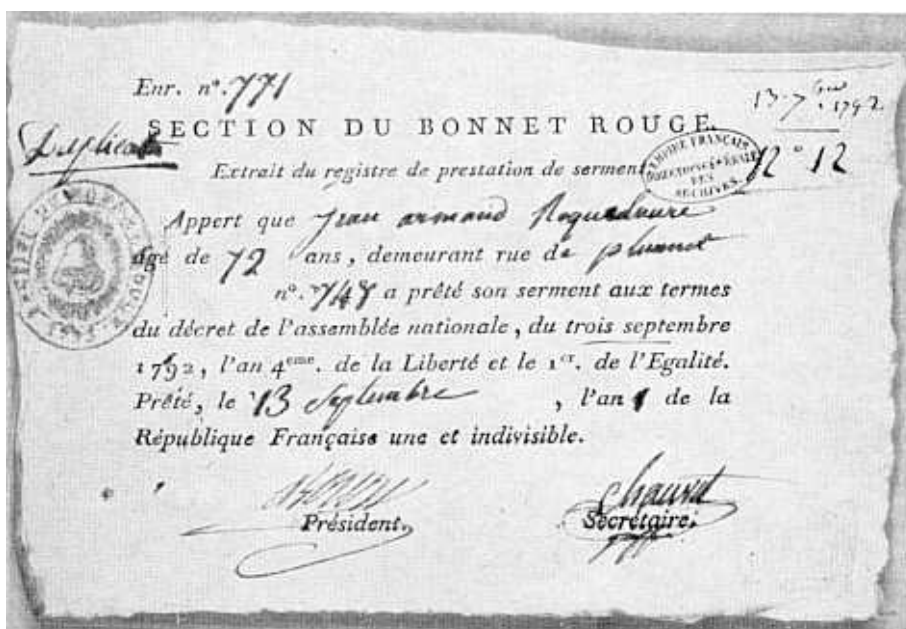 Enr. n°. 771
13 7bre 1792
SECTION DU BONNET ROUGE.
Duplicata
Extrait du registre de prestation de serment
EMPIRE FRANÇAIS
DIRECTION GÉNÉRALE
DES
ARCHIVES
12° 12
Appert que Jean armand Roquelaure
âgé de 72 ans, demeurant rue de
n°. 747 a prêté son serment aux termes
du décret de l'assemblée nationale, du trois septembre
1792, l'an 4eme. de la Liberté et le 1er. de l'Egalité.
Prêté, le 13 Septembre , l'an 1 de la
République Française une et indivisible.
Chauvet
Président,
Secretaire.